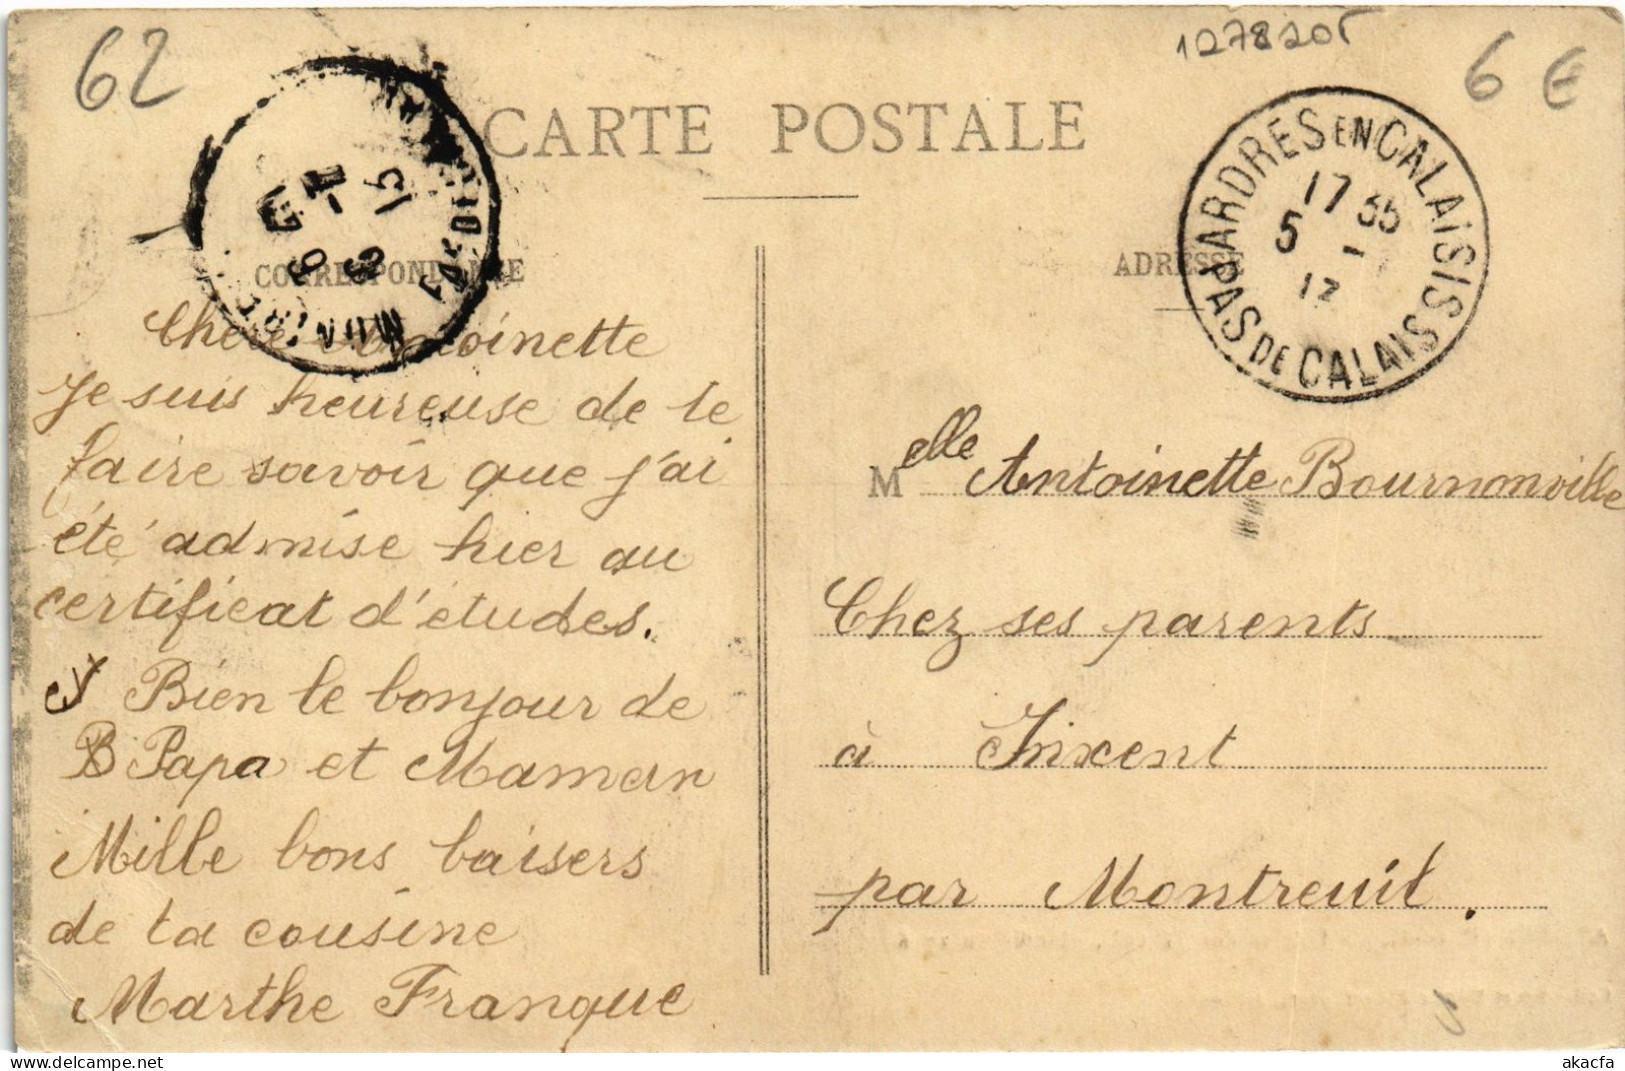 62
1278205
6 €
CARTE POSTALE
ARDRES EN CALAISIS
17 35
5 - 
PAS DE CALAIS
CORRESPONDANCE
ADRESSE
Chère Antoinette
Je suis heureuse de te
faire savoir que j'ai
été admise hier au
certificat d'études.
Bien le bonjour de
Papa et Maman
Mille bons baisers
de ta cousine
Marthe Franque
Melle Antoinette Bournonville
Chez ses parents
à Inxent
par Montreuil.
akacfa